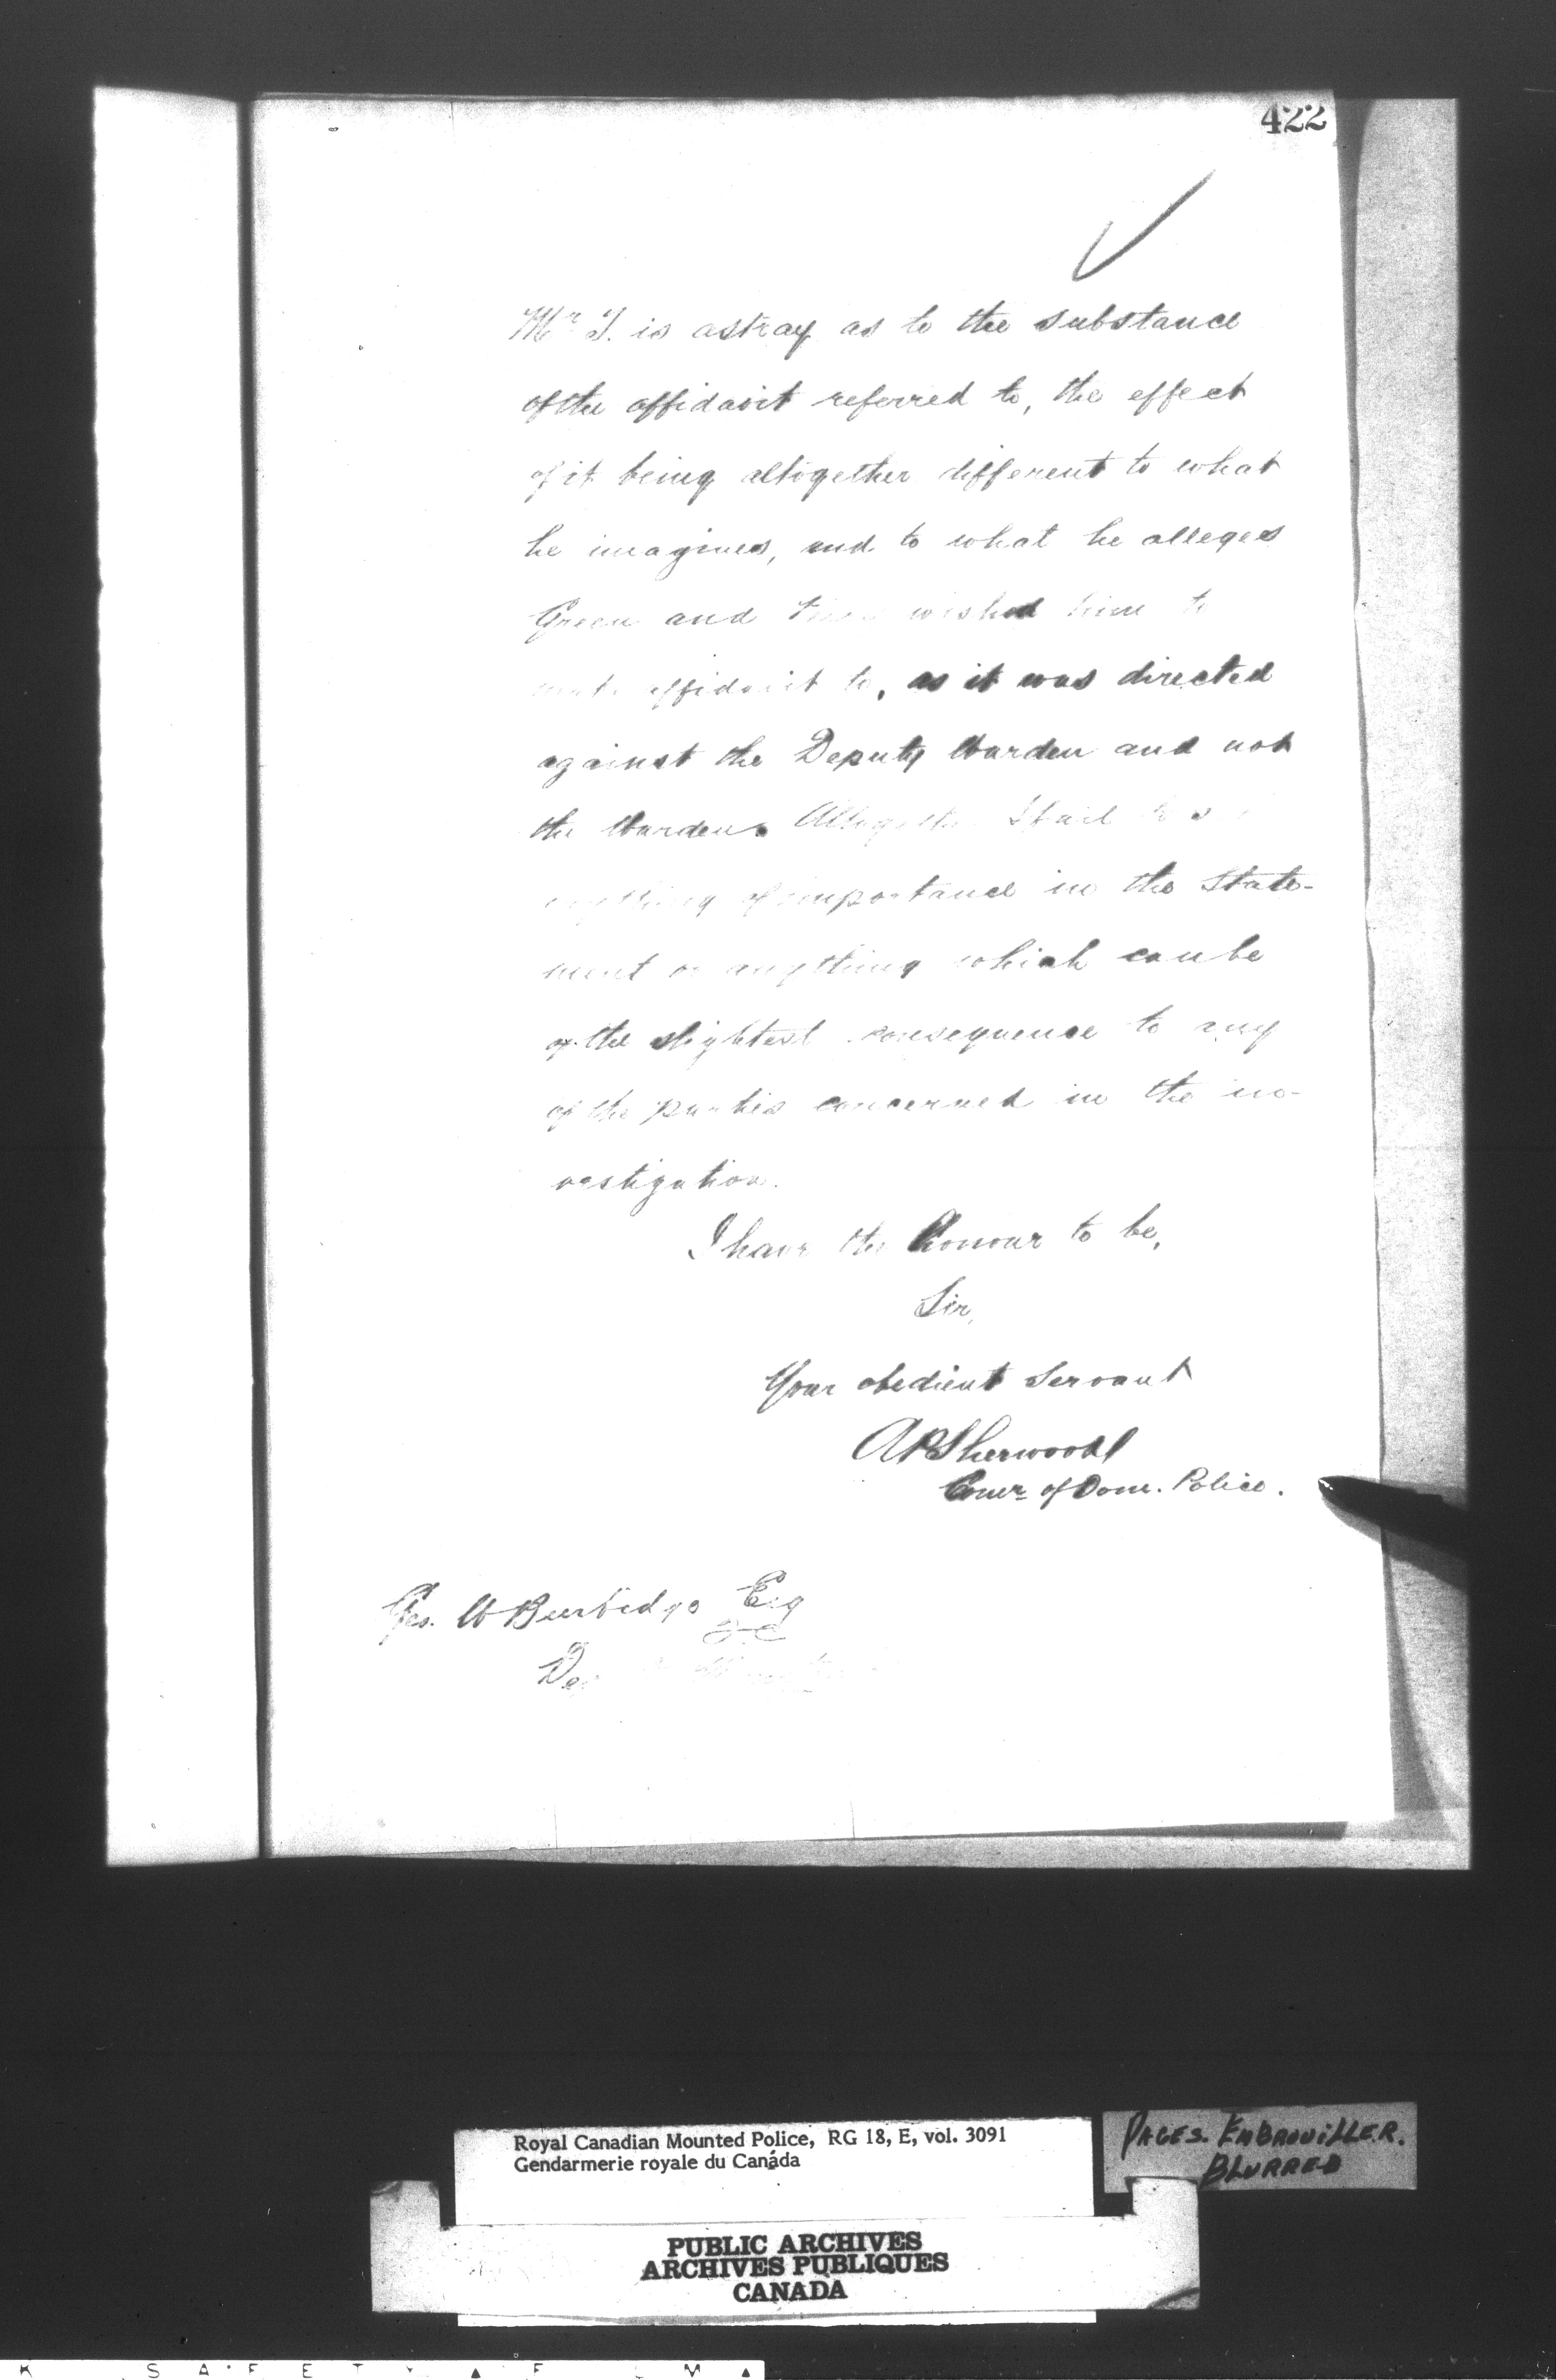 422
Mr T. is astray as to the substance
of the affidavit referred to, the effect
of it being altogether different to what
he imagines, and to what he alleges
Green and wished him to
make affidavit to, as it was directed
against the Deputy Warden and not
the Warden. Altogether I fail to see
anything of importance in the State-
ment or anything which can be
of the slightest consequence to any
of the parties concerned in the in-
vestigation.
I have the honour to be,
Sir,
Your obedient Servant
APSherwood
Comr of Dom. Police.
Geo. W Burbidge Esq
Royal Canadian Mounted Police, RG 18, E, vol. 3091
Gendarmerie royale du Canada
PAGES. EMBROUILLER.
BLURRED
PUBLIC ARCHIVES
ARCHIVES PUBLIQUES
CANADA
SAFETY